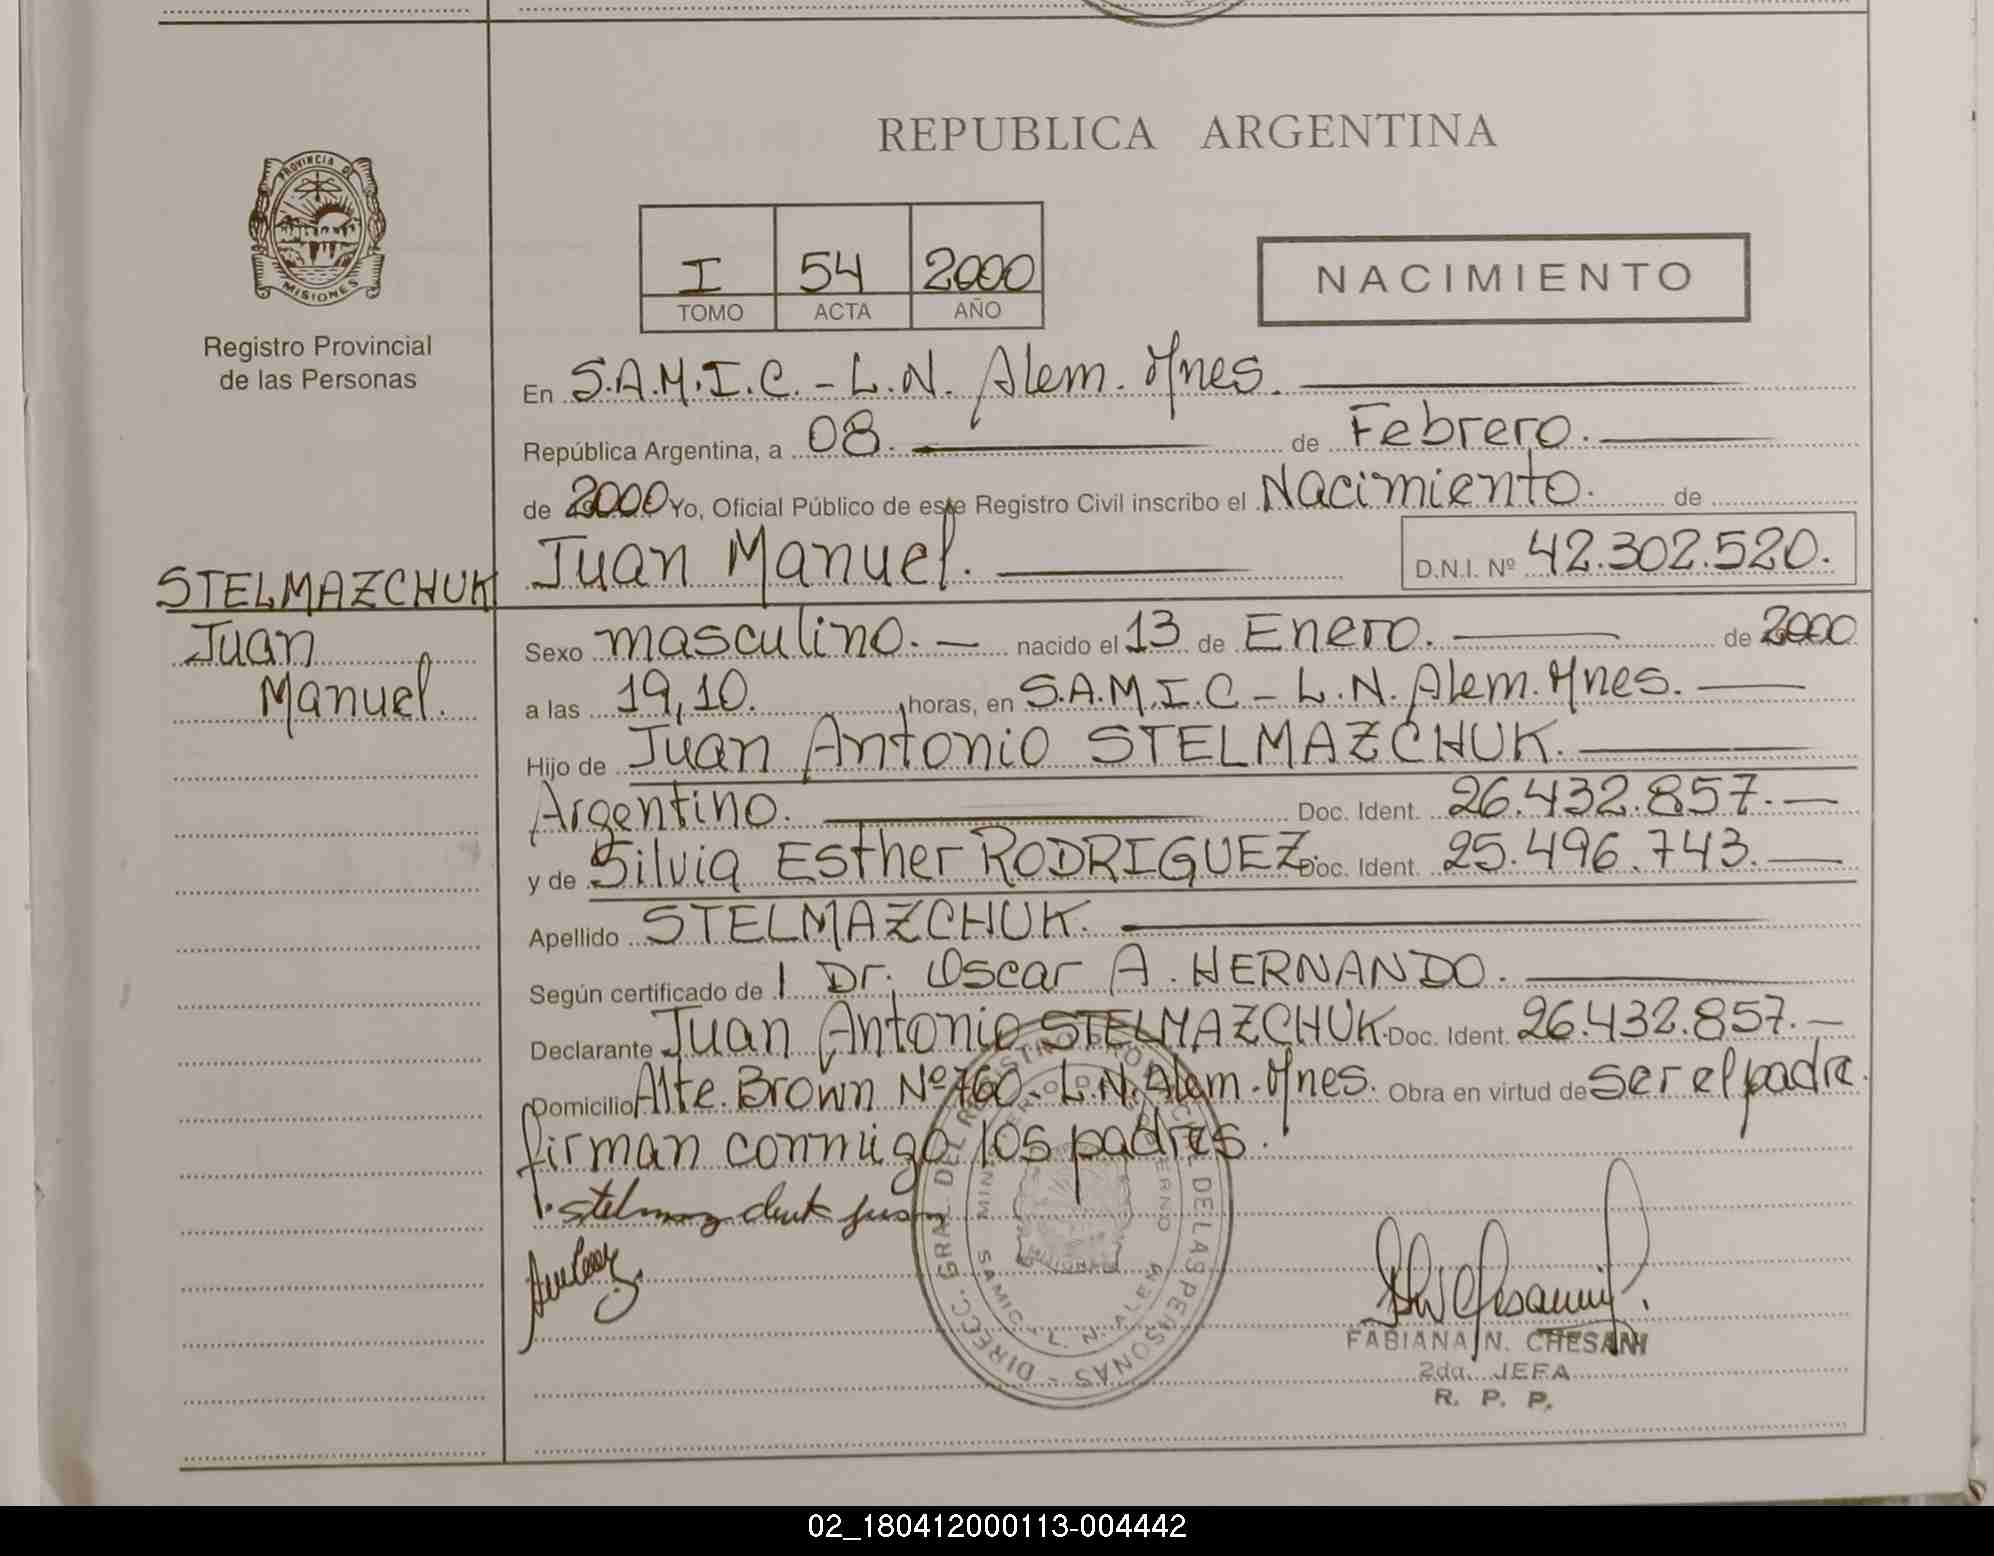 REPUBLICA ARGENTINA
PROVINCIA DE
MISIONES
Registro Provincial
de las Personas
I 54 2000
TOMO ACTA AÑO
NACIMIENTO
En S.A.M.I.C. - L.N. Alem. Mnes.
República Argentina, a 08. de Febrero.
de 2000 Yo, Oficial Público de este Registro Civil inscribo el Nacimiento. de
Juan Manuel. D.N.I. Nº 42.302.520.
STELMAZCHUK
Juan
Manuel.
Sexo masculino. nacido el 13 de Enero. de 2000
a las 19,10. horas, en S.A.M.I.C - L.N. Alem. Mnes.
Hijo de Juan Antonio STELMAZCHUK.
Argentino. Doc. Ident. 26.432.857.
y de Silvia Esther RODRIGUEZ. Doc. Ident. 25.496.743.
Apellido STELMAZCHUK.
Según certificado de l Dr. Oscar A. HERNANDO.
Declarante Juan Antonio STELMAZCHUK. Doc. Ident. 26.432.857.
Domicilio Alte. Brown Nº 760. L.N. Alem. Mnes. Obra en virtud de ser el padre.
firman conmigo los padres.
stelmazchuk juan
DIRECC. GRAL. DEL REGISTRO PROVINCIAL DE LAS PERSONAS
MINISTERIO DE GOBIERNO
MISIONES
SAMIC. - L. N. ALEM
FABIANA N. CHESANI
2da. JEFA
R. P. P.
02_180412000113-004442